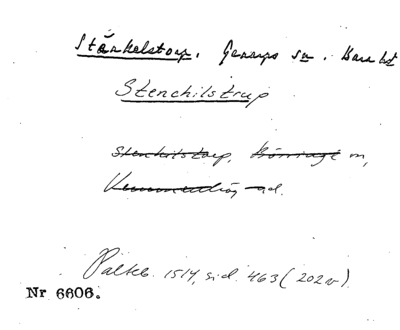 Stänkelstorp. Genarps sn. Bara hd
Stenchilstrup
Stenchilstorp, m,
ad.
Palteb. 1514, sid 463 (202v)
Nr 6606.